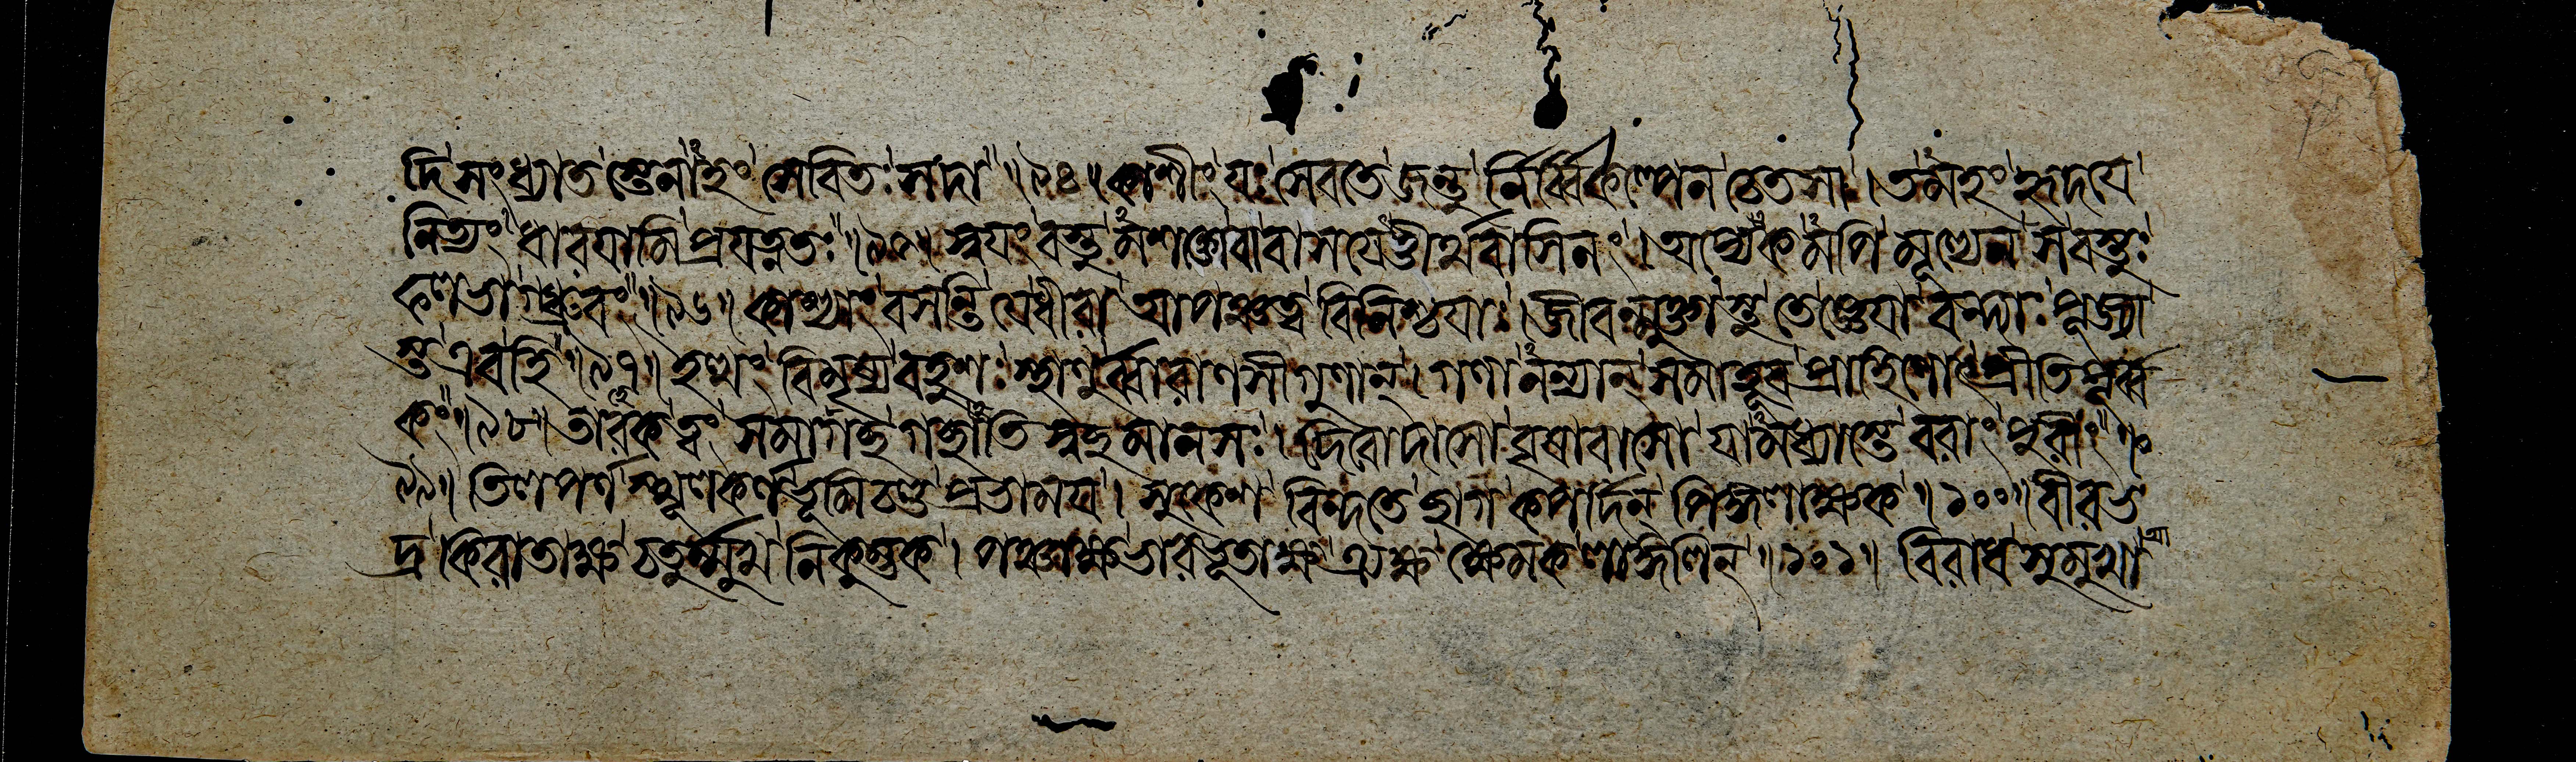 দিসংধ্যাতস্তেনাহং সেবিতঃ সদা ॥৯৪॥ কাশীং যঃ সেবতে জন্তুর্নির্ব্বিকল্পেন চেতসা । তমহং হৃদযে
নিত্যং ধারযামি প্রযত্নতঃ ॥৯৫॥ স্বযং বস্তুমশক্তোবাবাসযেত্তীর্থবাসিনং । অপ্যেকমপি মূল্যেন স বস্তুঃ
ফলভাগ্ধ্রুবং ॥৯৬॥ কাশ্যাং বসন্তি যে ধীরা আপঞ্চত্ববিনিশ্চযাঃ । জীবন্মুক্তাস্তু তে জ্ঞেযা বন্দ্যাঃ পূজ্যা
স্ত এব হি ॥৯৭॥ ইত্থং বিমৃষ্য বহুশঃ স্থাণুর্ব্বারাণসীগুণান্ । গণানন্যান্ সমাহূয প্রাহিণোৎ প্রীতিপূর্ব্ব
কং ॥৯৮॥ তারকত্বং সমাগচ্ছ গচ্ছাতি স্বচ্ছমানসঃ । দিবোদাসো বৃষাবাসো যামধ্যাস্তে বরাং পুরীং ॥
৯৯॥ তিলপর্ণ স্থূলকর্ণ দৃমিচণ্ড প্রভাময । সুকেশ বিন্দতে ছাগ কপর্দিন্ পিঙ্গলাক্ষক ॥১০০॥ বীরভ
দ্র কিরাতাক্ষ চতুর্ম্মুখ নিকুম্ভক । পঞ্চাক্ষ ভারভূতাক্ষ ত্র্যক্ষ ক্ষেমক লাঙ্গলিন্ ॥১০১॥ বিরাধ সুমুখা